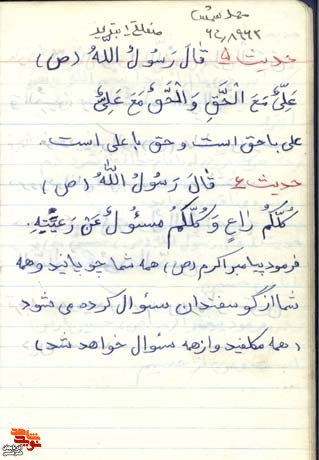 حدیث ۵ قالَ رَسُولُ اللهُ (ص)
عَلِیٌّ مَعَ الْحَقِّ وَالْحَقُّ مَعَ عَلِیٌّ
علی با حق است و حق با علی است
حدیث ۶ قالَ رَسُولُ اللهُ (ص)
کُلُّکُم راعٍ وَ کُلُّکُم مسئُولٌ عَنْ رَعیَّتِهِ.
فرمود پیامبر اکرم (ص) همه شما چوپانید و همه
شما از گوسفندان سئوال کرده می شود
(همه مکلفید و از همه سئوال خواهد شد)